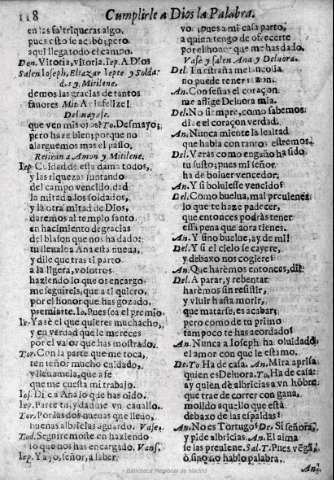 118 Cumplirle a Dios la Palabra.
en las faltriqueras algo,
pues esto se acabó, pero
aqui llega todo el campo.
Den. Vitoria, vitoria. Iep. A Dios
Salen Ioseph, Eleazar Iepte y Soldados, y Mitilene.
demos las gracias de tantos
fauores
Desmayase.
que ven mis ojos? To. Desmayo;
pero haze bien, por que no
alarguemos mas el passo.
Retiran a Amon y Mitilene.
Iep. Cuidad de essa dama todos,
y las riquezas juntando
del campo vencido, dad
la mitad a los soldados,
y la otra mitad de Dios,
daremos al templo santo
en hacimiento de gracias
del blason que nos ha dado:
tu llamale a Ana esta nueua,
y dile que tras ti parto
a la ligera, vosotros
haziendo lo que os encargo
me seguireis, que a ti quiero,
por el honor que has gozado,
premiarte. Io. Pues sea el premio
Ie. Ya sè el que quieres muchacho,
y en verdad que le mereces
por el valor que has mostrado.
Tor. Con la parte que me toca,
ten señor mucho cuidado,
y lleuamela, que a fe
que me cuesta mi trabajo.
Ios. Di a Ana lo que has oido.
Iep. Parte tu, y dadme vn cauallo.
Tor. Por las dos nueuas que lleuo,
buenas albricias aguardo. Vase.
Tod. Seguiremoste en haziendo
lo que nos has encargado. Vans.
Iep. Ya yo, señor, a saber.
voy pues a mi casa parto,
a quien tengo de ofrecerte
por el honor que me has dado.
Vase y salen Ana y Debora.
Del. Tu estraña melancolia
no puede tener reme
An. Confessas el coraçon
me aflige Debora mia.
Del. No siempre, como sabemos
dize el coraçon verdad.
An. Nunca miente la lealtad
que habla con tantos estremos.
Del. Veràs como engaño ha sido
tu susto; pues mi señor
ha de boluer vencedor.
An. Y si boluiesse vencido?
Del. Como buelua, mal preuienes
lo que te haze padecer,
que entonces podràs tener
essa pena que aora tienes.
An. Y sino buelue, ay de mi!
Del. Y si el cielo se cayere,
y debaxo nos cogiere?
An. Que haremos entonces, di?
Del. A parar, y rebentar
haremos sin resistir,
y viuir hasta morir,
que matarse, es acabar;
pero como de tu primo
tampoco te has acordado?
An. Nunca a Ioseph ha oluidado
el amor con que le estimo.
De. To Ha de casa. An. Mira aprisa
quien es Debora. To. Ha de casa:
ay quien dè albricias a vn hõbre
que trae de correr con gana,
molido aquello que està
debaxo de las espaldas?
An. No es Tortugo? De. Si señora,
y pide albricias. An. El alma
se las preuiene. Sal T. Pues vega,
ò sino no hablo palabra.
An.
Biblioteca Regional de Madrid